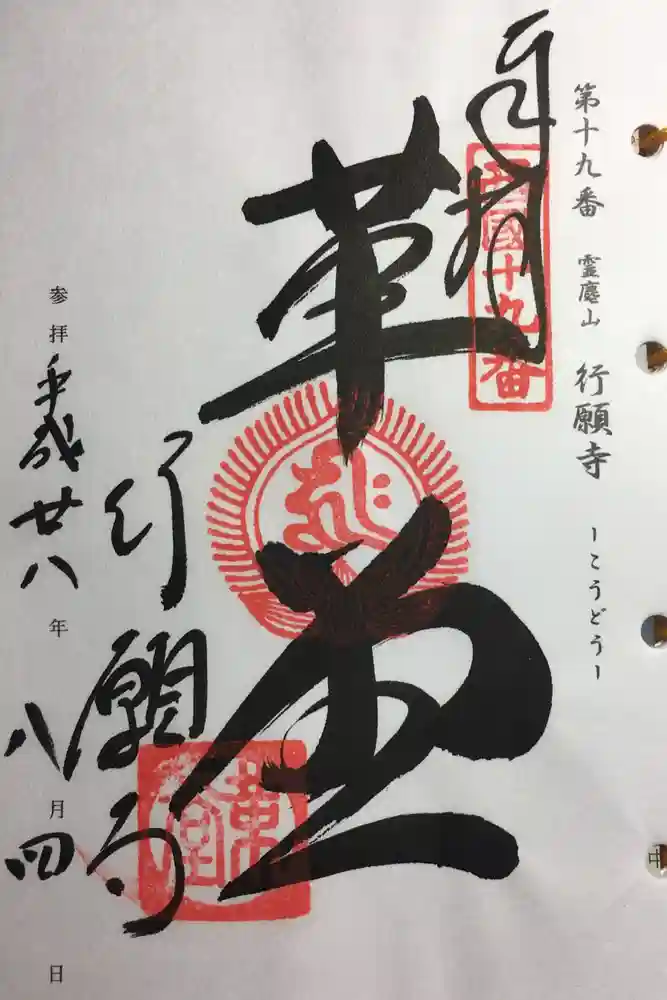 第十九番 霊麀山 行願寺 ーこうどうー
奉拝
西國十九番
革堂
行願寺
革堂
参拝 平成廿八年 八月四日
中